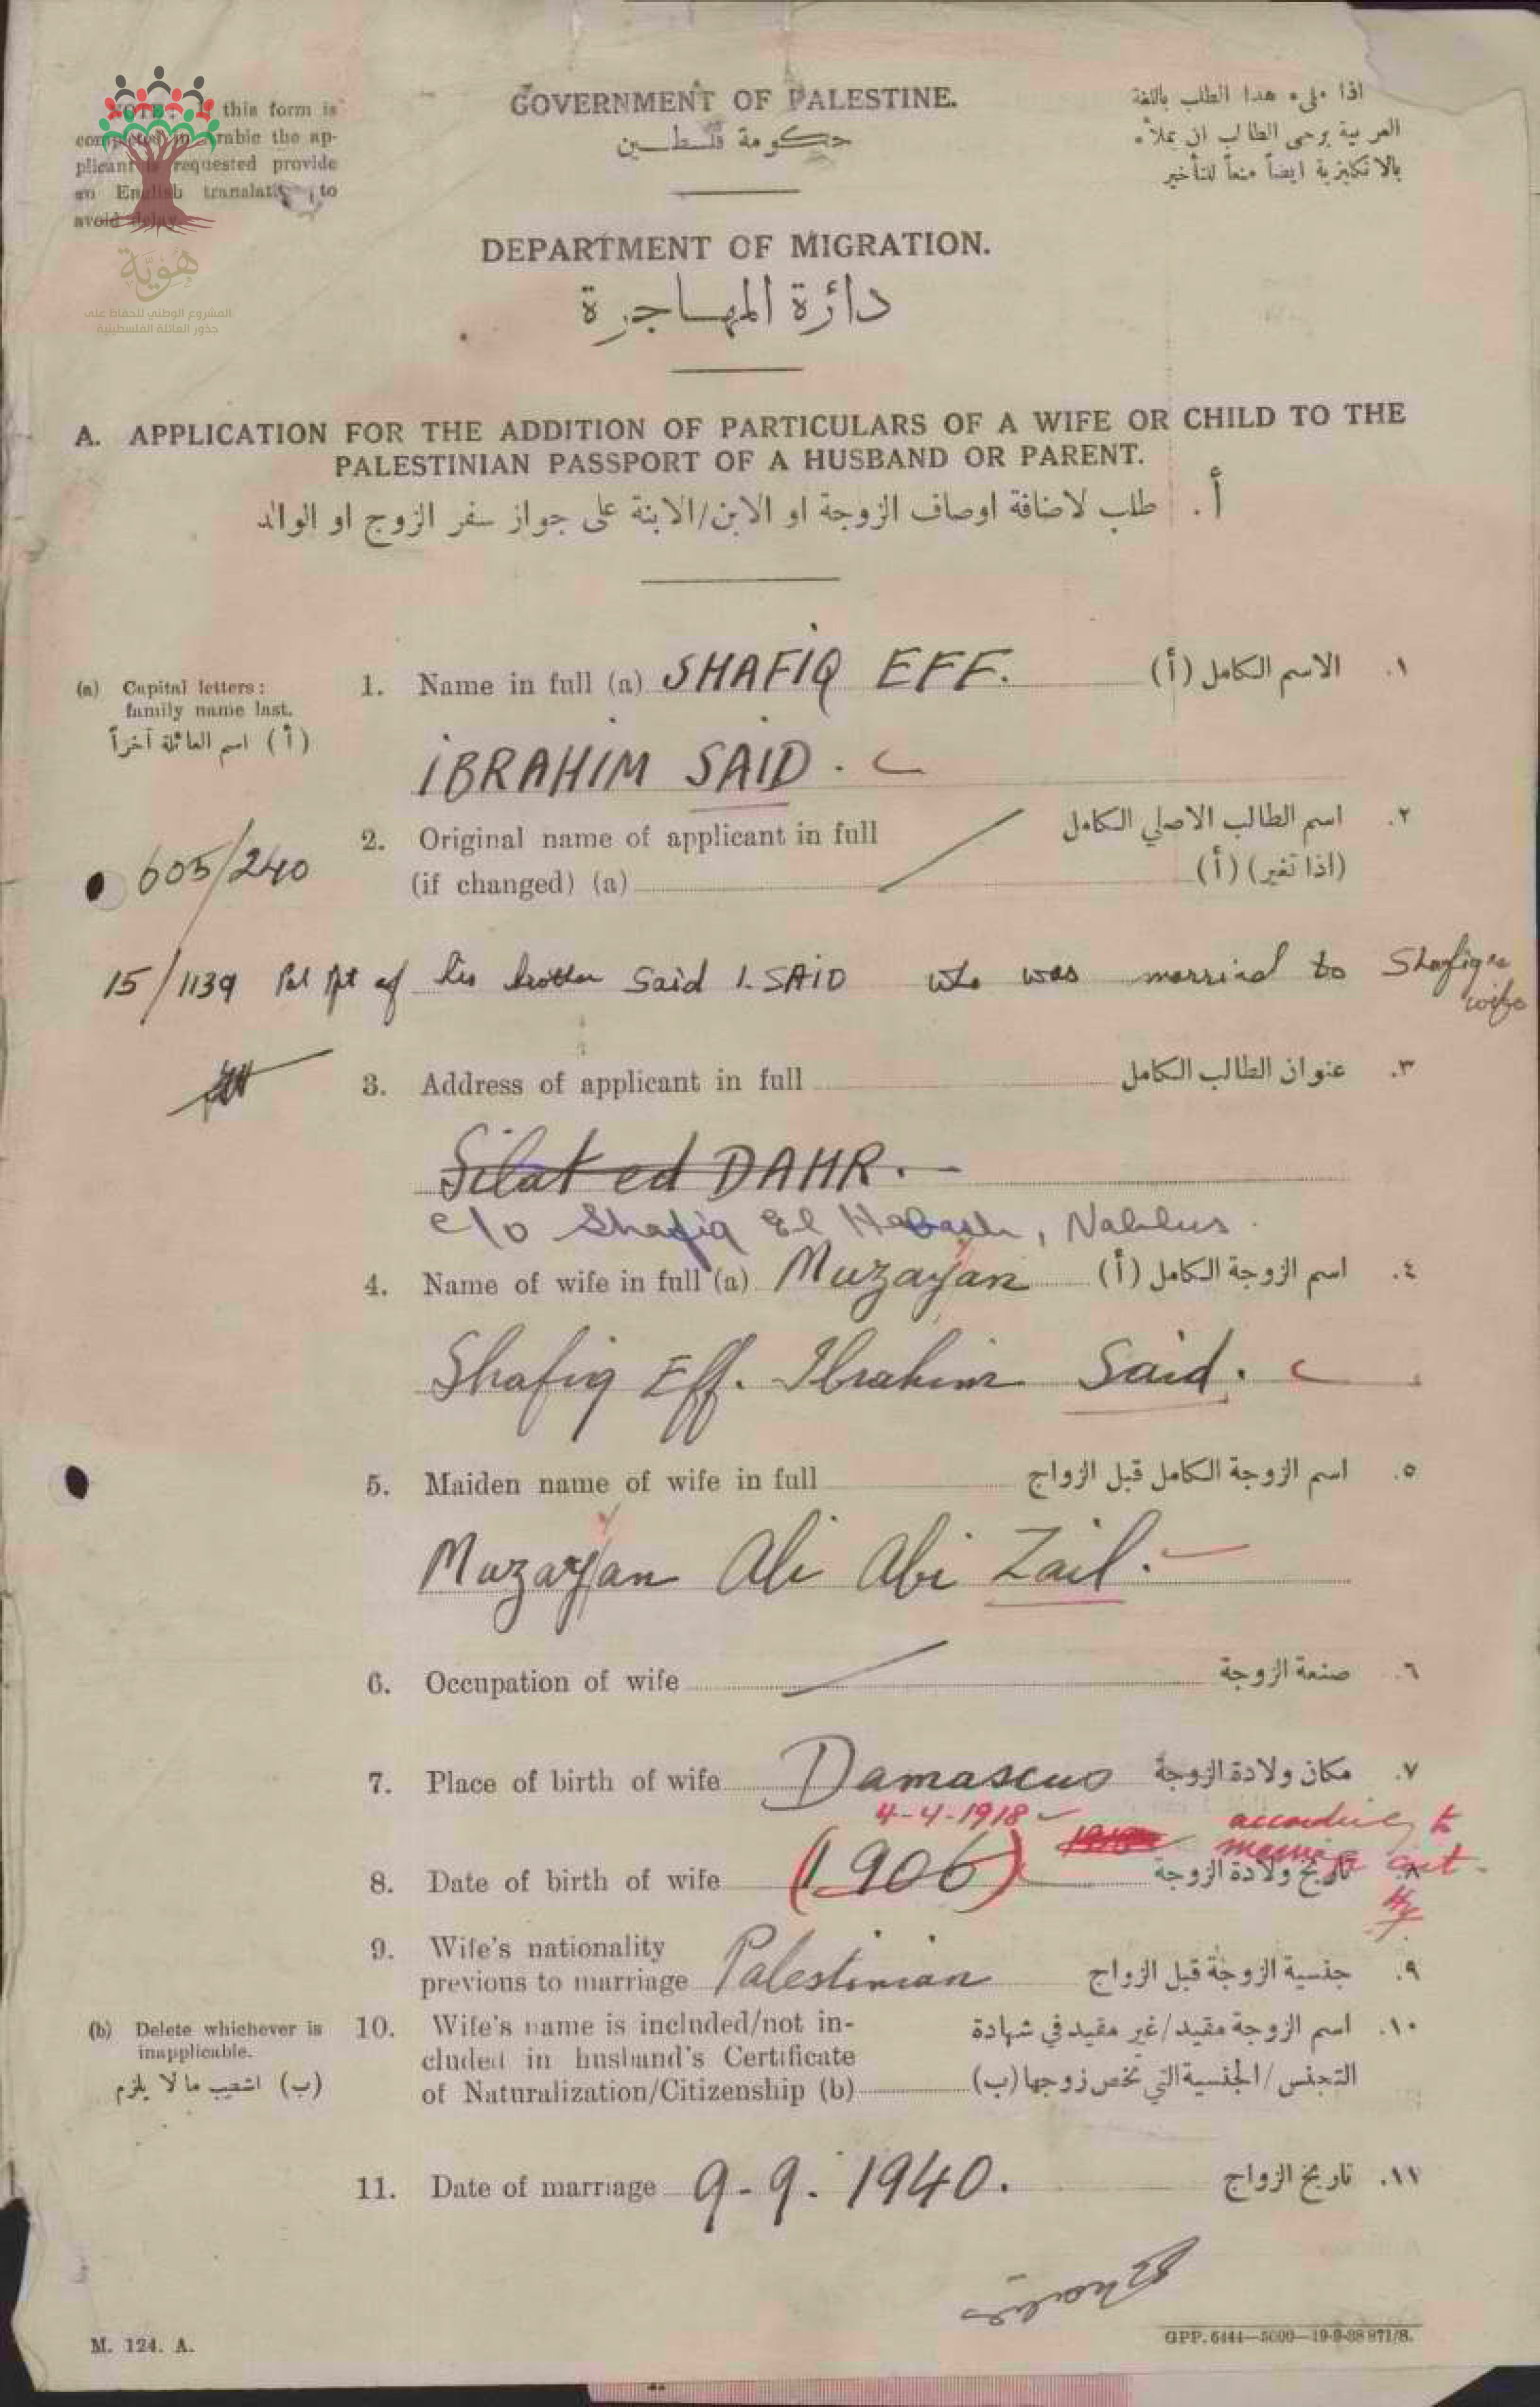 NOTE: If this form is
completed in Arabic the ap-
plicant is requested provide
an English translation to
avoid delay.
هوية
المشروع الوطني للحفاظ على
جذور العائلة الفلسطينية
GOVERNMENT OF PALESTINE.
حكومة فلسطين
اذا ملىء هذا الطلب باللغة
العربية يرجى الطالب ان يملأه
بالانكليزية ايضاً منعاً للتأخير
DEPARTMENT OF MIGRATION.
دائرة المهاجرة
A. APPLICATION FOR THE ADDITION OF PARTICULARS OF A WIFE OR CHILD TO THE
PALESTINIAN PASSPORT OF A HUSBAND OR PARENT.
أ. طلب لاضافة اوصاف الزوجة او الابن/الابنة على جواز سفر الزوج او الوالد
(a) Capital letters:
family name last.
(أ) اسم العائلة آخراً
1. Name in full (a) SHAFIQ EFF. الاسم الكامل (أ) ١.
IBRAHIM SAID.
2. Original name of applicant in full اسم الطالب الاصلي الكامل ٢.
(if changed) (a) (اذا تغير) (أ)
605/240
15/1139 Pal Ppt of his brother Said I. SAID who was married to Shafiq's
wife
3. Address of applicant in full عنوان الطالب الكامل ٣.
Silat ed DAHR.
c/o Shafiq El Habash, Nablus.
4. Name of wife in full (a) Muzayan اسم الزوجة الكامل (أ) ٤.
Shafiq Eff. Ibrahim Said.
5. Maiden name of wife in full اسم الزوجة الكامل قبل الزواج ٥.
Muzayan Ali Abi Zail.
6. Occupation of wife صنعة الزوجة ٦.
7. Place of birth of wife Damascus مكان ولادة الزوجة ٧.
4-4-1918 according to
marriage cert.
8. Date of birth of wife (1906) تاريخ ولادة الزوجة ٨.
9. Wife's nationality
previous to marriage Palestinian جنسية الزوجة قبل الزواج ٩.
(b) Delete whichever is
inapplicable.
(ب) اشطب ما لا يلزم
10. Wife's name is included/not in- اسم الزوجة مقيد/غير مقيد في شهادة ١٠.
cluded in husband's Certificate
of Naturalization/Citizenship (b) التجنس/الجنسية التي تخص زوجها (ب)
11. Date of marriage 9-9-1940. تاريخ الزواج ١١.
M. 124. A.
GPP. 6444—5000—19-9-38 871/8.